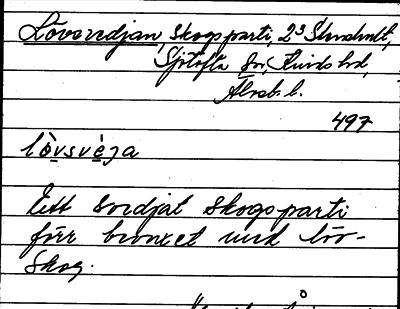 Lövsvedjan, Skogsparti, 23 Strandhult,
Sjötofta sn, Kinds hd,
Älvsb. l.
497
lòvsvèja
Ett svedjat skogsparti
förr bevuxet med löv-
skog.